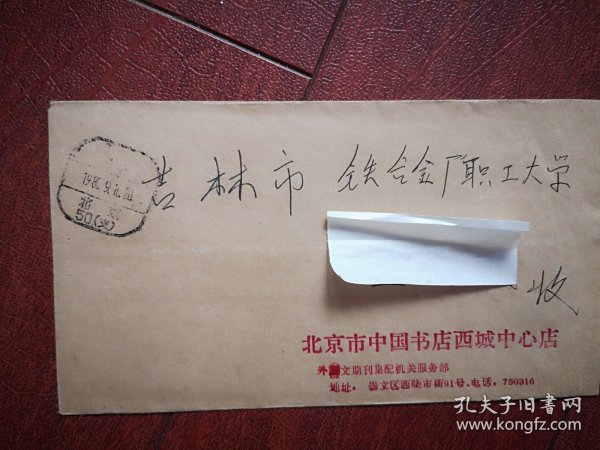 吉林市 铁合金厂职工大学
收
北京
50(支)
北京市中国书店西城中心店
外文期刊集配机关服务部
地址:崇文区西晓市街91号.电话:750916
孔夫子旧书网
www.kongfz.com